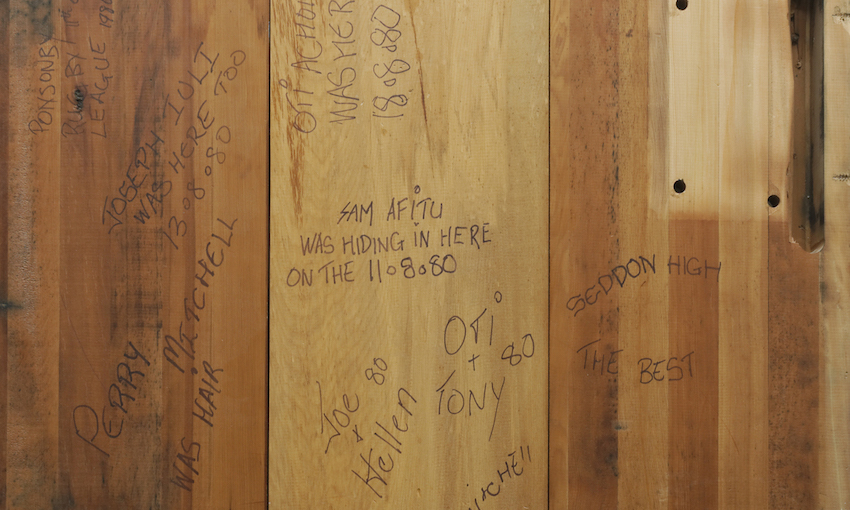 PONSONBY
RUGBY
LEAGUE 1980
JOSEPH IULI
WAS HERE TOO
13.08.80
MITCHELL
WAS HAIR
PERRY
OTI ACHOU
WAS HERE
18.8.80
SAM AFITU
WAS HIDING IN HERE
ON THE 11.8.80
OTI
+
TONY 80
Joe 80
+
Hellen
MitCHEll
SEDDON HIGH
THE BEST